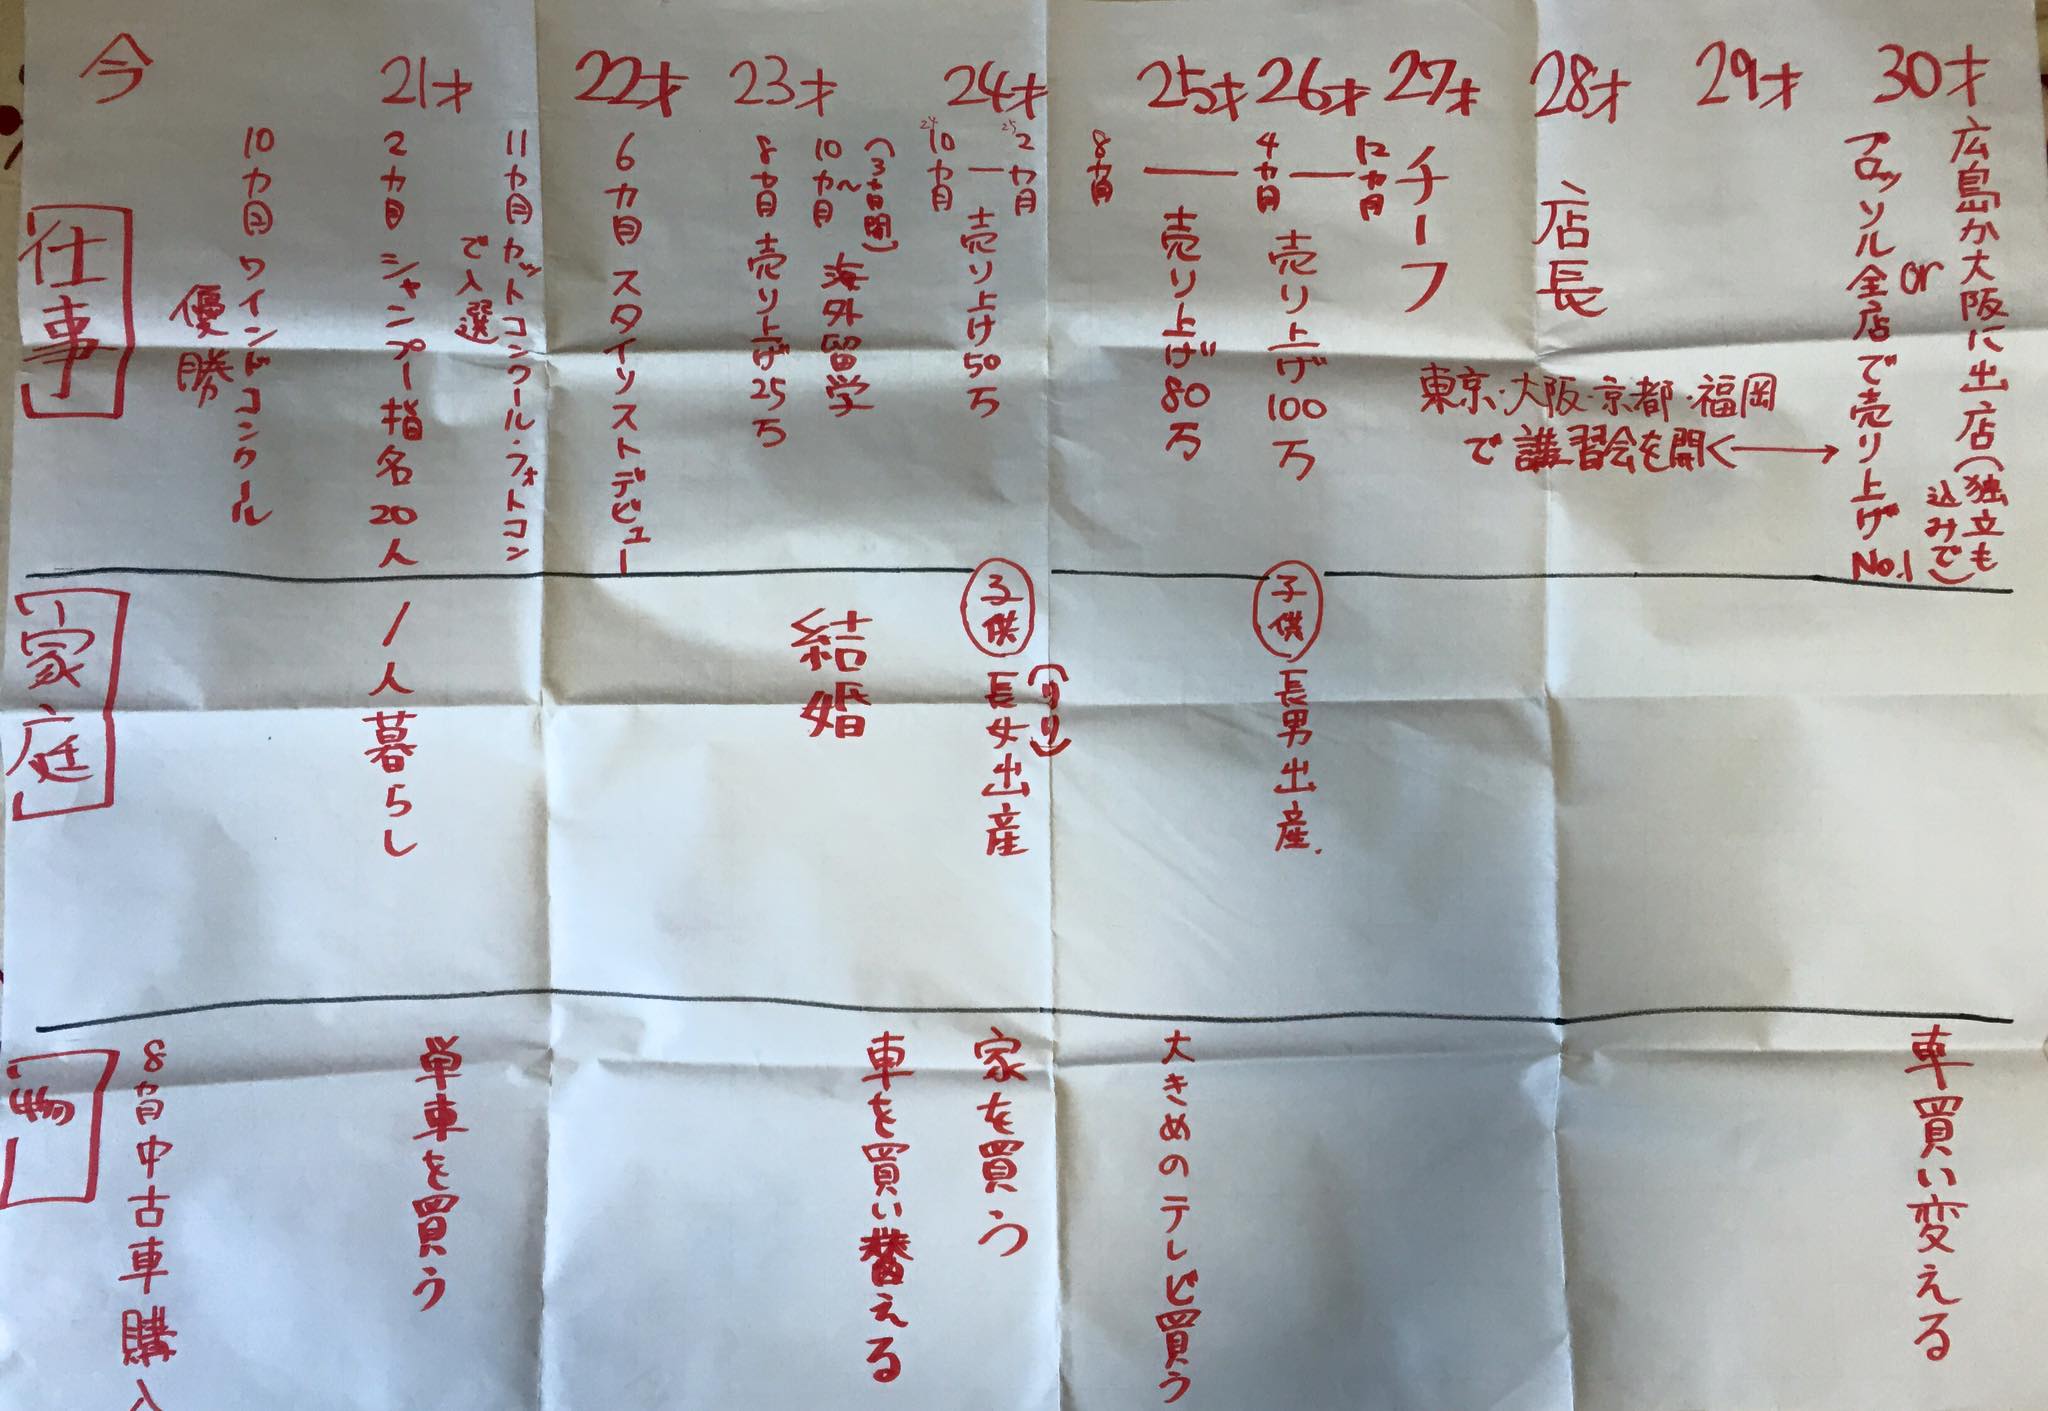 今
21才
22才
23才
24才
25才
26才
27才
28才
29才
30才
仕事
10カ月ワインドコンクール
優勝
2カ月シャンプー指名20人
11カ月カットコンクール・フォトコン
で入選
6カ月スタイリストデビュー
8カ月売り上げ25万
10カ月〜
(3カ月間)
海外留学
24 10カ月
ー
25 2カ月
売り上げ50万
8カ月
ー
売り上げ80万
4カ月
ー
12カ月
売り上げ100万
チーフ
店長
東京・大阪・京都・福岡
で講習会を開く→
アロッソル全店で売り上げNo.1
or
広島か大阪に出店(独立も
込みで)
家庭
1人暮らし
結婚
子供
長女出産
(リリ)
子供
長男出産.
物
8カ月中古車購入
単車を買う
車を買い替える
家を買う
大きめのテレビ買う
車買い変える